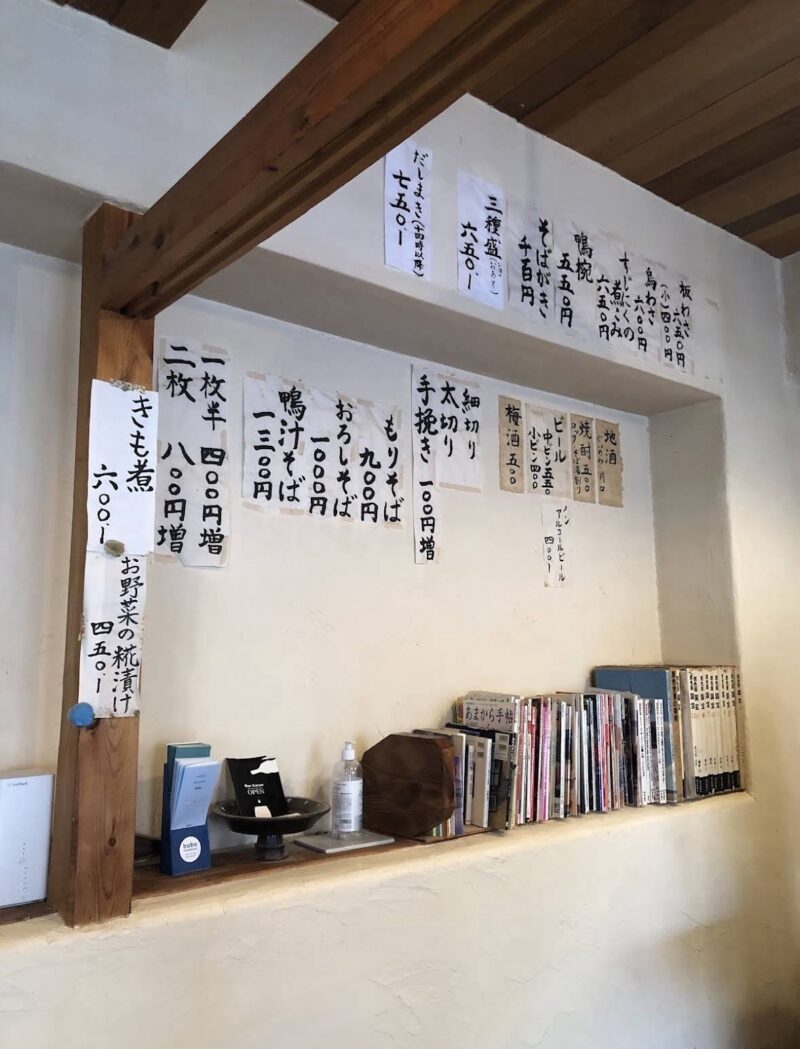 板わさ
六五〇円
鳥わさ
六〇〇円
(小)四〇〇円
すじにくの
煮こみ
六五〇円
鴨椀
五五〇円
そばがき
千百円
三種盛
六五〇.ー
だしまき(十四時以降)
七五〇.ー
地酒
焼酎 五〇〇
ロック そば湯割り
ビール
中ビン 五五〇
小ビン 四〇〇
梅酒 五〇〇
ノン
アルコールビール
四〇〇.ー
細切り
太切り
手挽き 一〇〇円増
もりそば
九〇〇円
おろしそば
一〇〇〇円
鴨汁そば
一三〇〇円
一枚半 四〇〇円増
二枚 八〇〇円増
きも煮
六〇〇.ー
お野菜の糀漬け
四五〇.ー
あまから手帖
OPEN